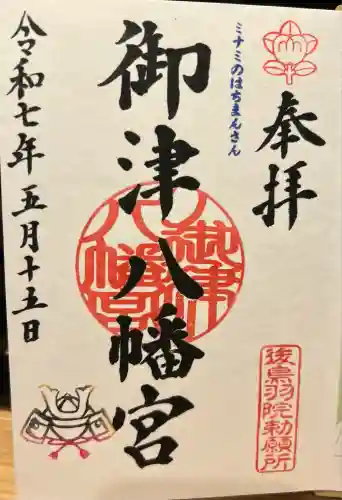 奉拝
ミナミのはちまんさん
御津八幡宮
御津八幡宮
令和七年五月十五日
後鳥羽院勅願所